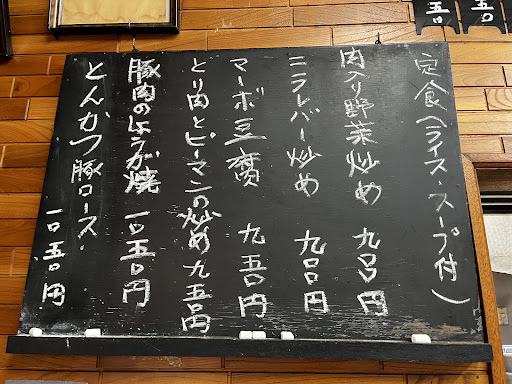 定食(ライス・スープ付)
肉入り野菜炒め 九〇〇円
ニラレバー炒め 九〇〇円
マーボ豆腐 九五〇円
とり肉とピーマンの炒め 九五〇円
豚肉のしょうが焼 一〇五〇円
とんかつ豚ロース 一〇五〇円